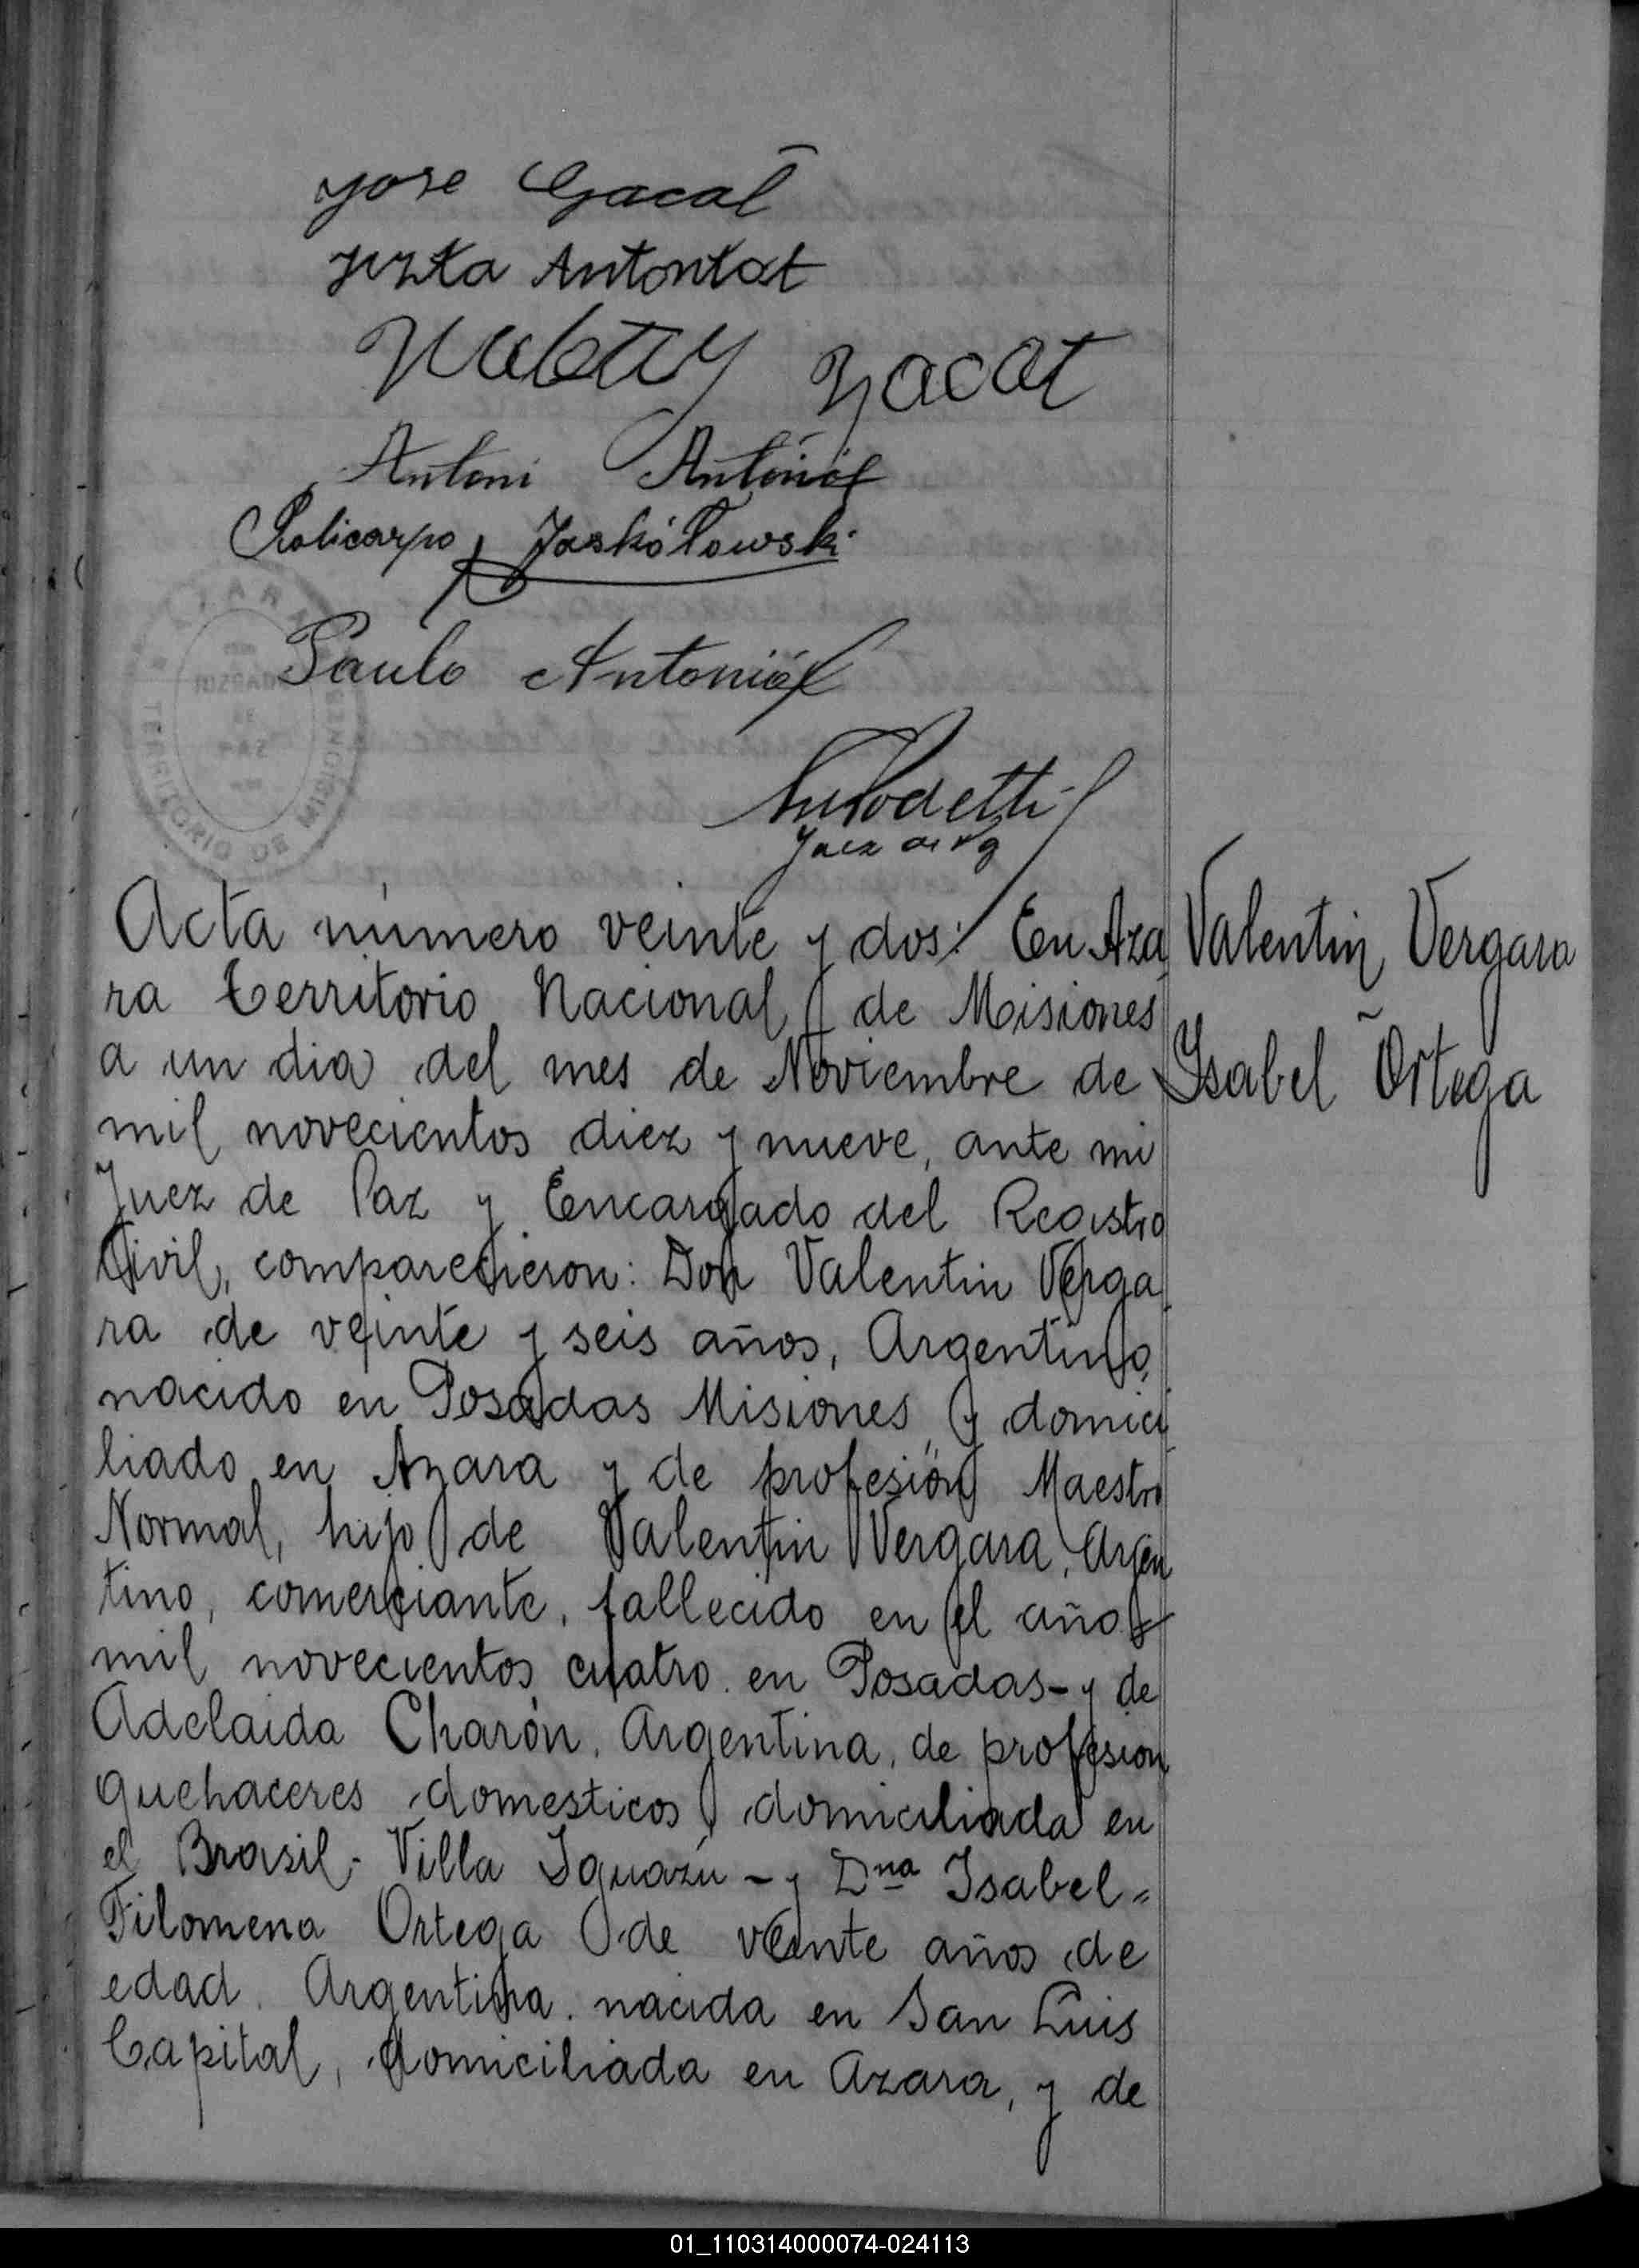 Jose Gacal
Antoni Antoniół
Policarpo Jaskółowski
Paulo Antoniół
Juez de Paz
Acta número veinte y dos: En Aza
ra territorio Nacional de Misiones
a un dia del mes de Noviembre de
mil novecientos diez y nueve, ante mi
Juez de Paz y Encargado del Registro
Civil, comparecieron: Don Valentin Verga
ra de veinte y seis años, Argentino,
nacido en Posadas Misiones y domici
liado en Azara y de profesión Maestro
Normal, hijo de Valentin Vergara, Argen
tino, comerciante, fallecido en el año
mil novecientos cuatro en Posadas - y de
Adelaida Charón, Argentina, de profesion
quehaceres domesticos, domiciliada en
el Brasil - Villa Iguazú - y Dna Isabel =
Filomena Ortega de veinte años de
edad, Argentina, nacida en San Luis
Capital, domiciliada en Azara, y de
Valentin Vergara
Isabel Ortega
TERRITORIO DE MISIONES
01_110314000074-024113